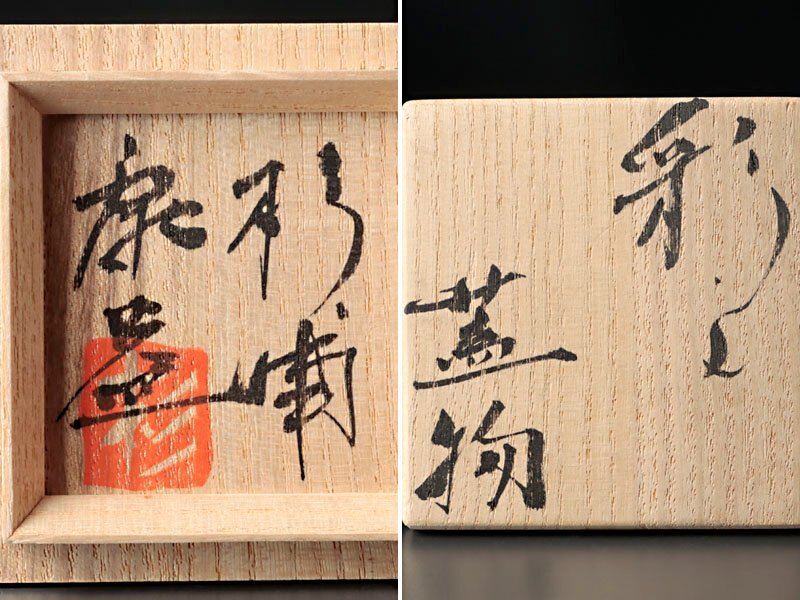 杉浦
康益
彩
蓋物